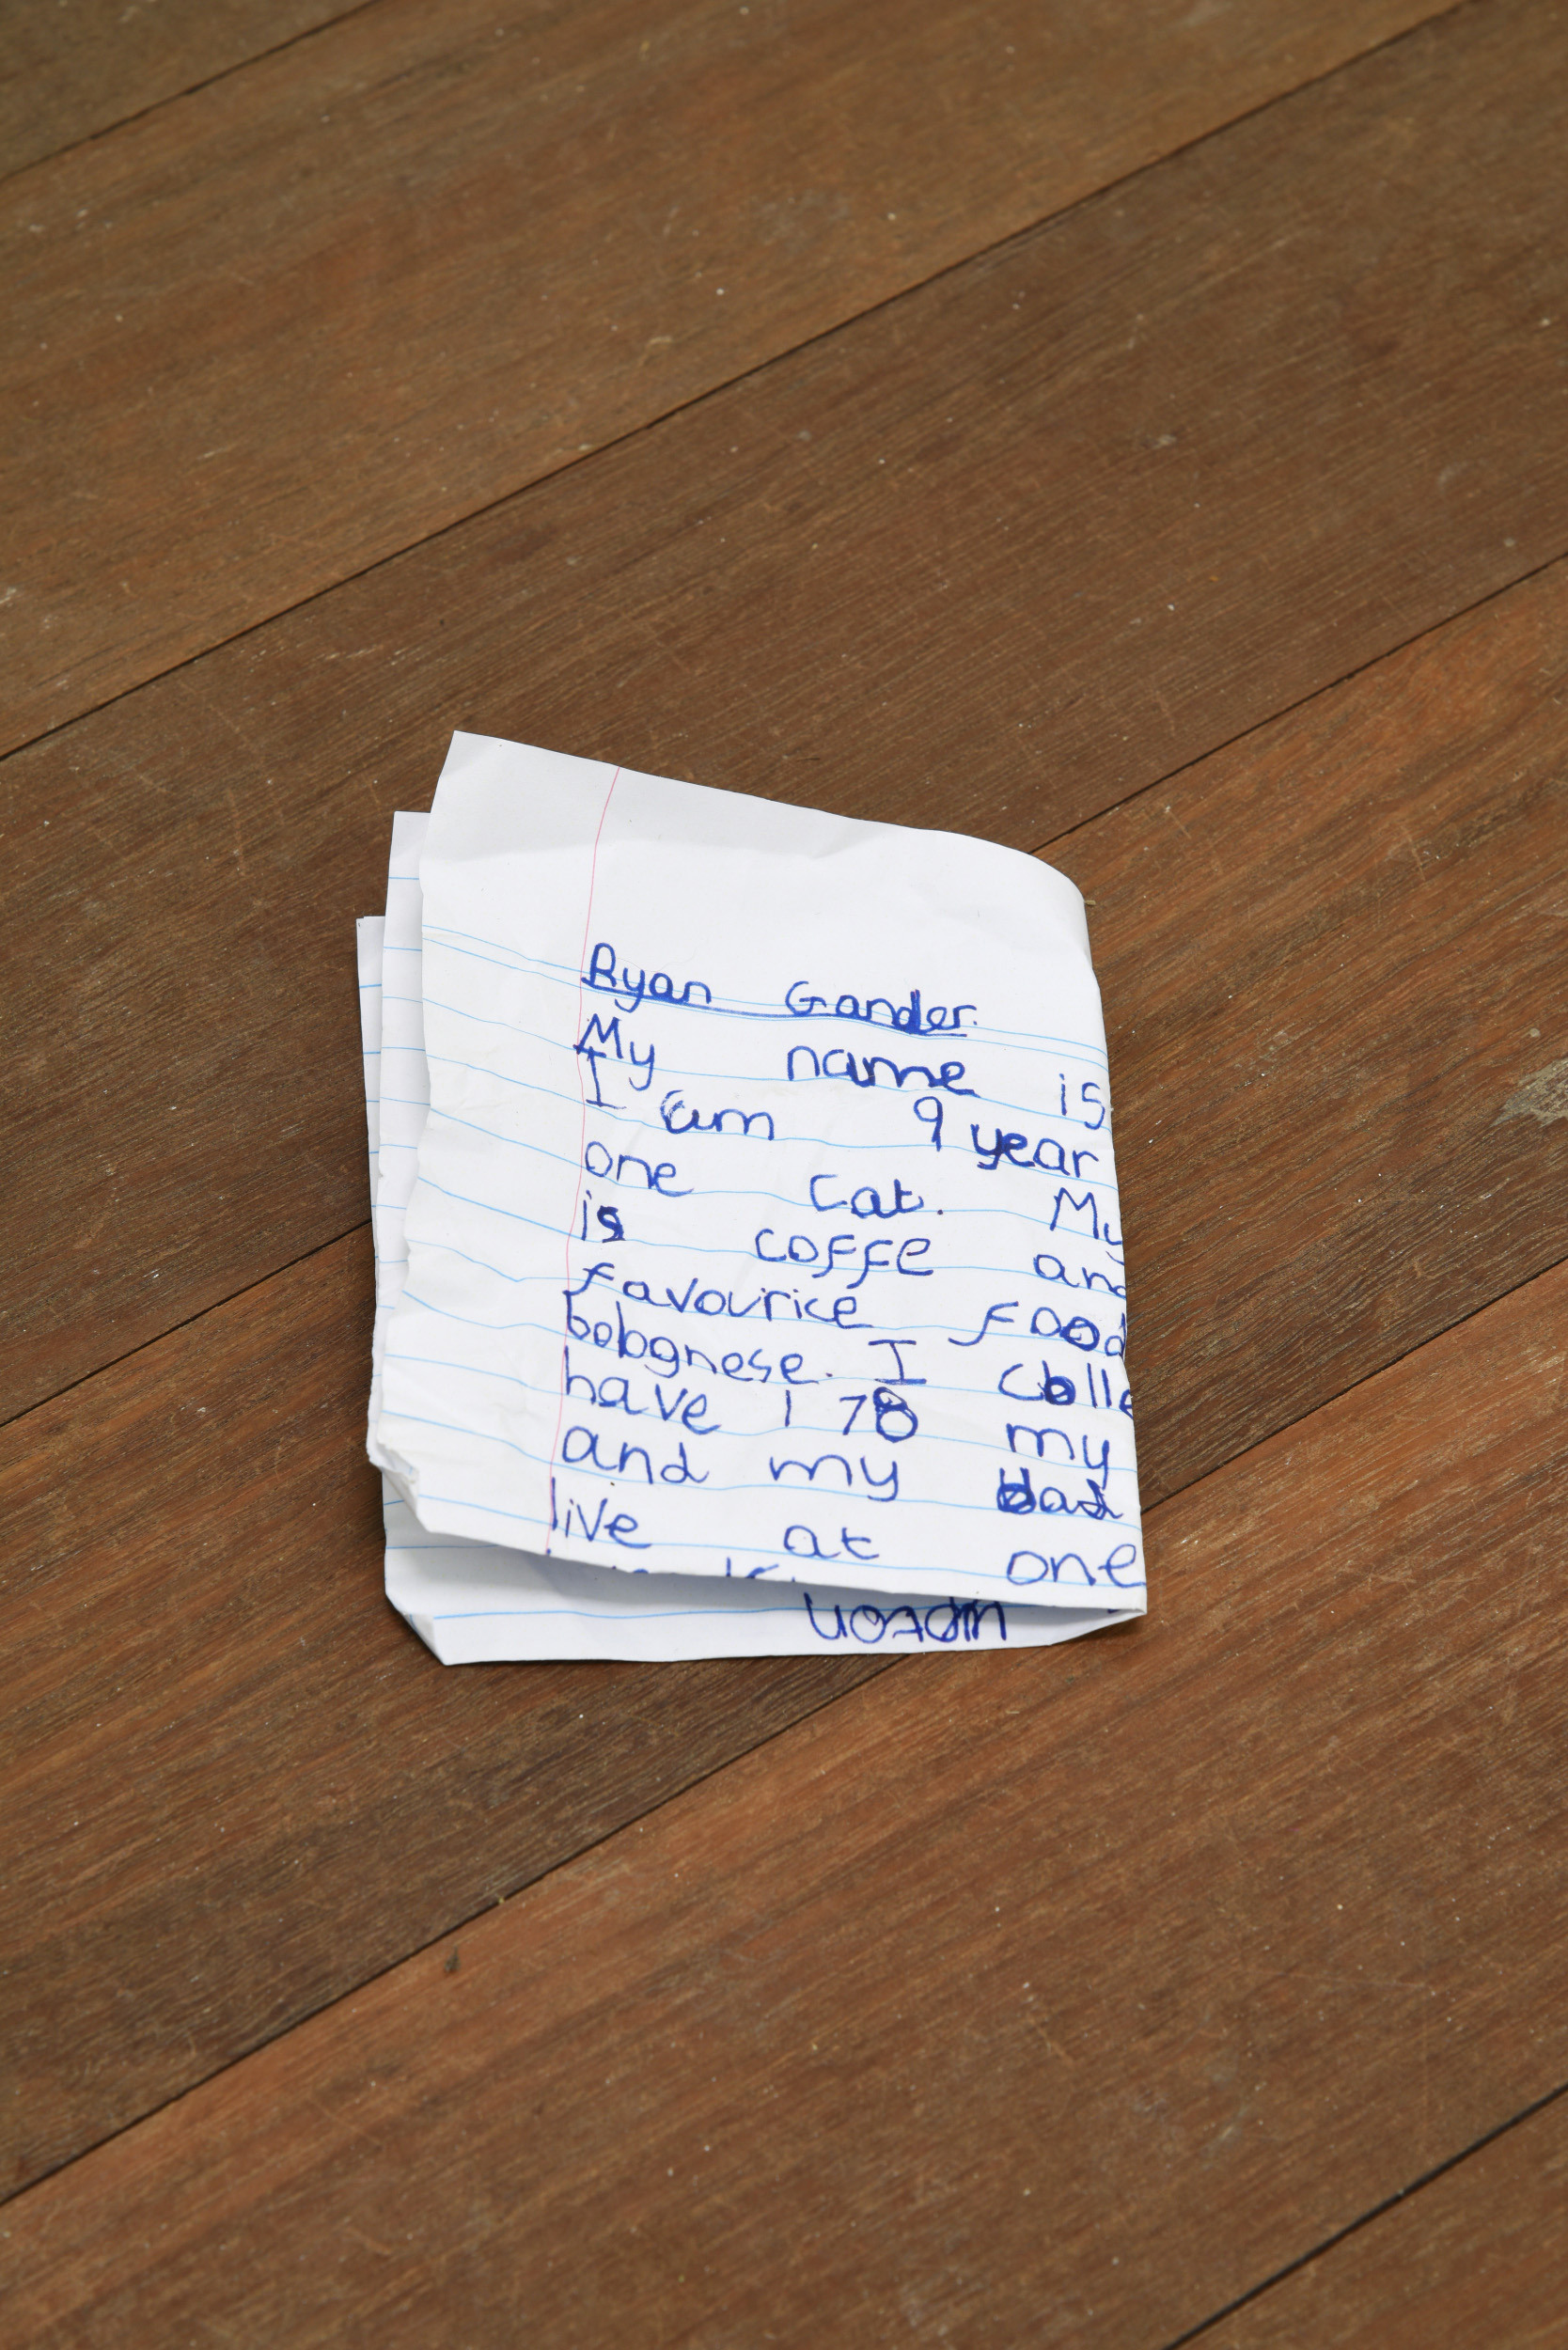 Ryan Gander.
My name is
I am 9 year
one cat. My
is coffe and
favourice food
bolognese. I colle
have 178 my
and my dad
live at one